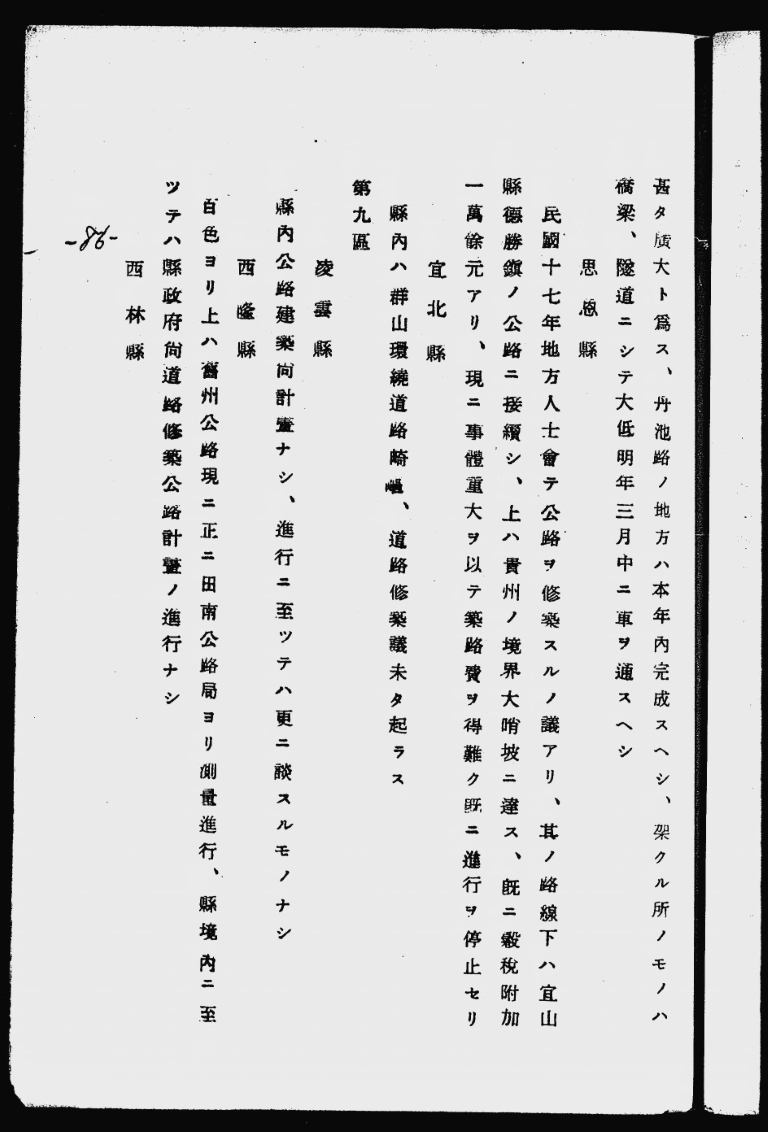 甚タ廣大ト爲ス、丹池路ノ地方ハ本年內完成スヘシ、架クル所ノモノハ
橋梁、隧道ニシテ大低明年三月中ニ車ヲ通スヘシ
思恩縣
民國十七年地方人士會テ公路ヲ修築スルノ議アリ、其ノ路線下ハ宜山
縣德勝鎭ノ公路ニ接續シ、上ハ貴州ノ境界大哨坡ニ達ス、既ニ穀稅附加
一萬餘元アリ、現ニ事體重大ヲ以テ築路費ヲ得難ク既ニ進行ヲ停止セリ
宜北縣
縣內ハ群山環繞道路崎嶇、道路修築議未タ起ラス
第九區
凌雲縣
縣內公路建築尙計畫ナシ、進行ニ至ツテハ更ニ談スルモノナシ
西隆縣
百色ヨリ上ハ舊州公路現ニ正ニ田南公路局ヨリ測量進行、縣境內ニ至
ツテハ縣政府尙道路修築公路計畫ノ進行ナシ
西林縣
-86-